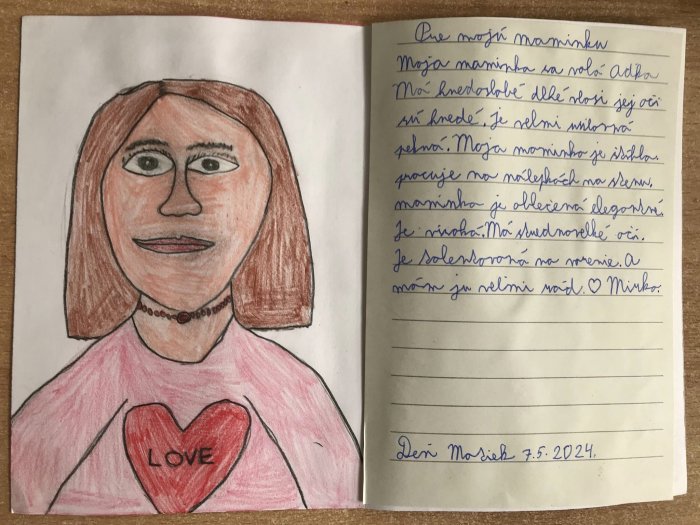 LOVE
Pre mojú maminku
Moja maminka sa volá Adka
Má hnedoslobé dlhé vlosi jej oči
sú hnedé. Je velmi usilovná
pekná. Moja maminka je štíhla.
pracuje na nálepkách na stenu.
maminka je oblečená elegantné.
Je visoká. Má strednovelké oči.
Je talentovaná na varenie. A
mám ju velmi rád. ♡ Mirko.
Deň Matiek 7.5.2024.